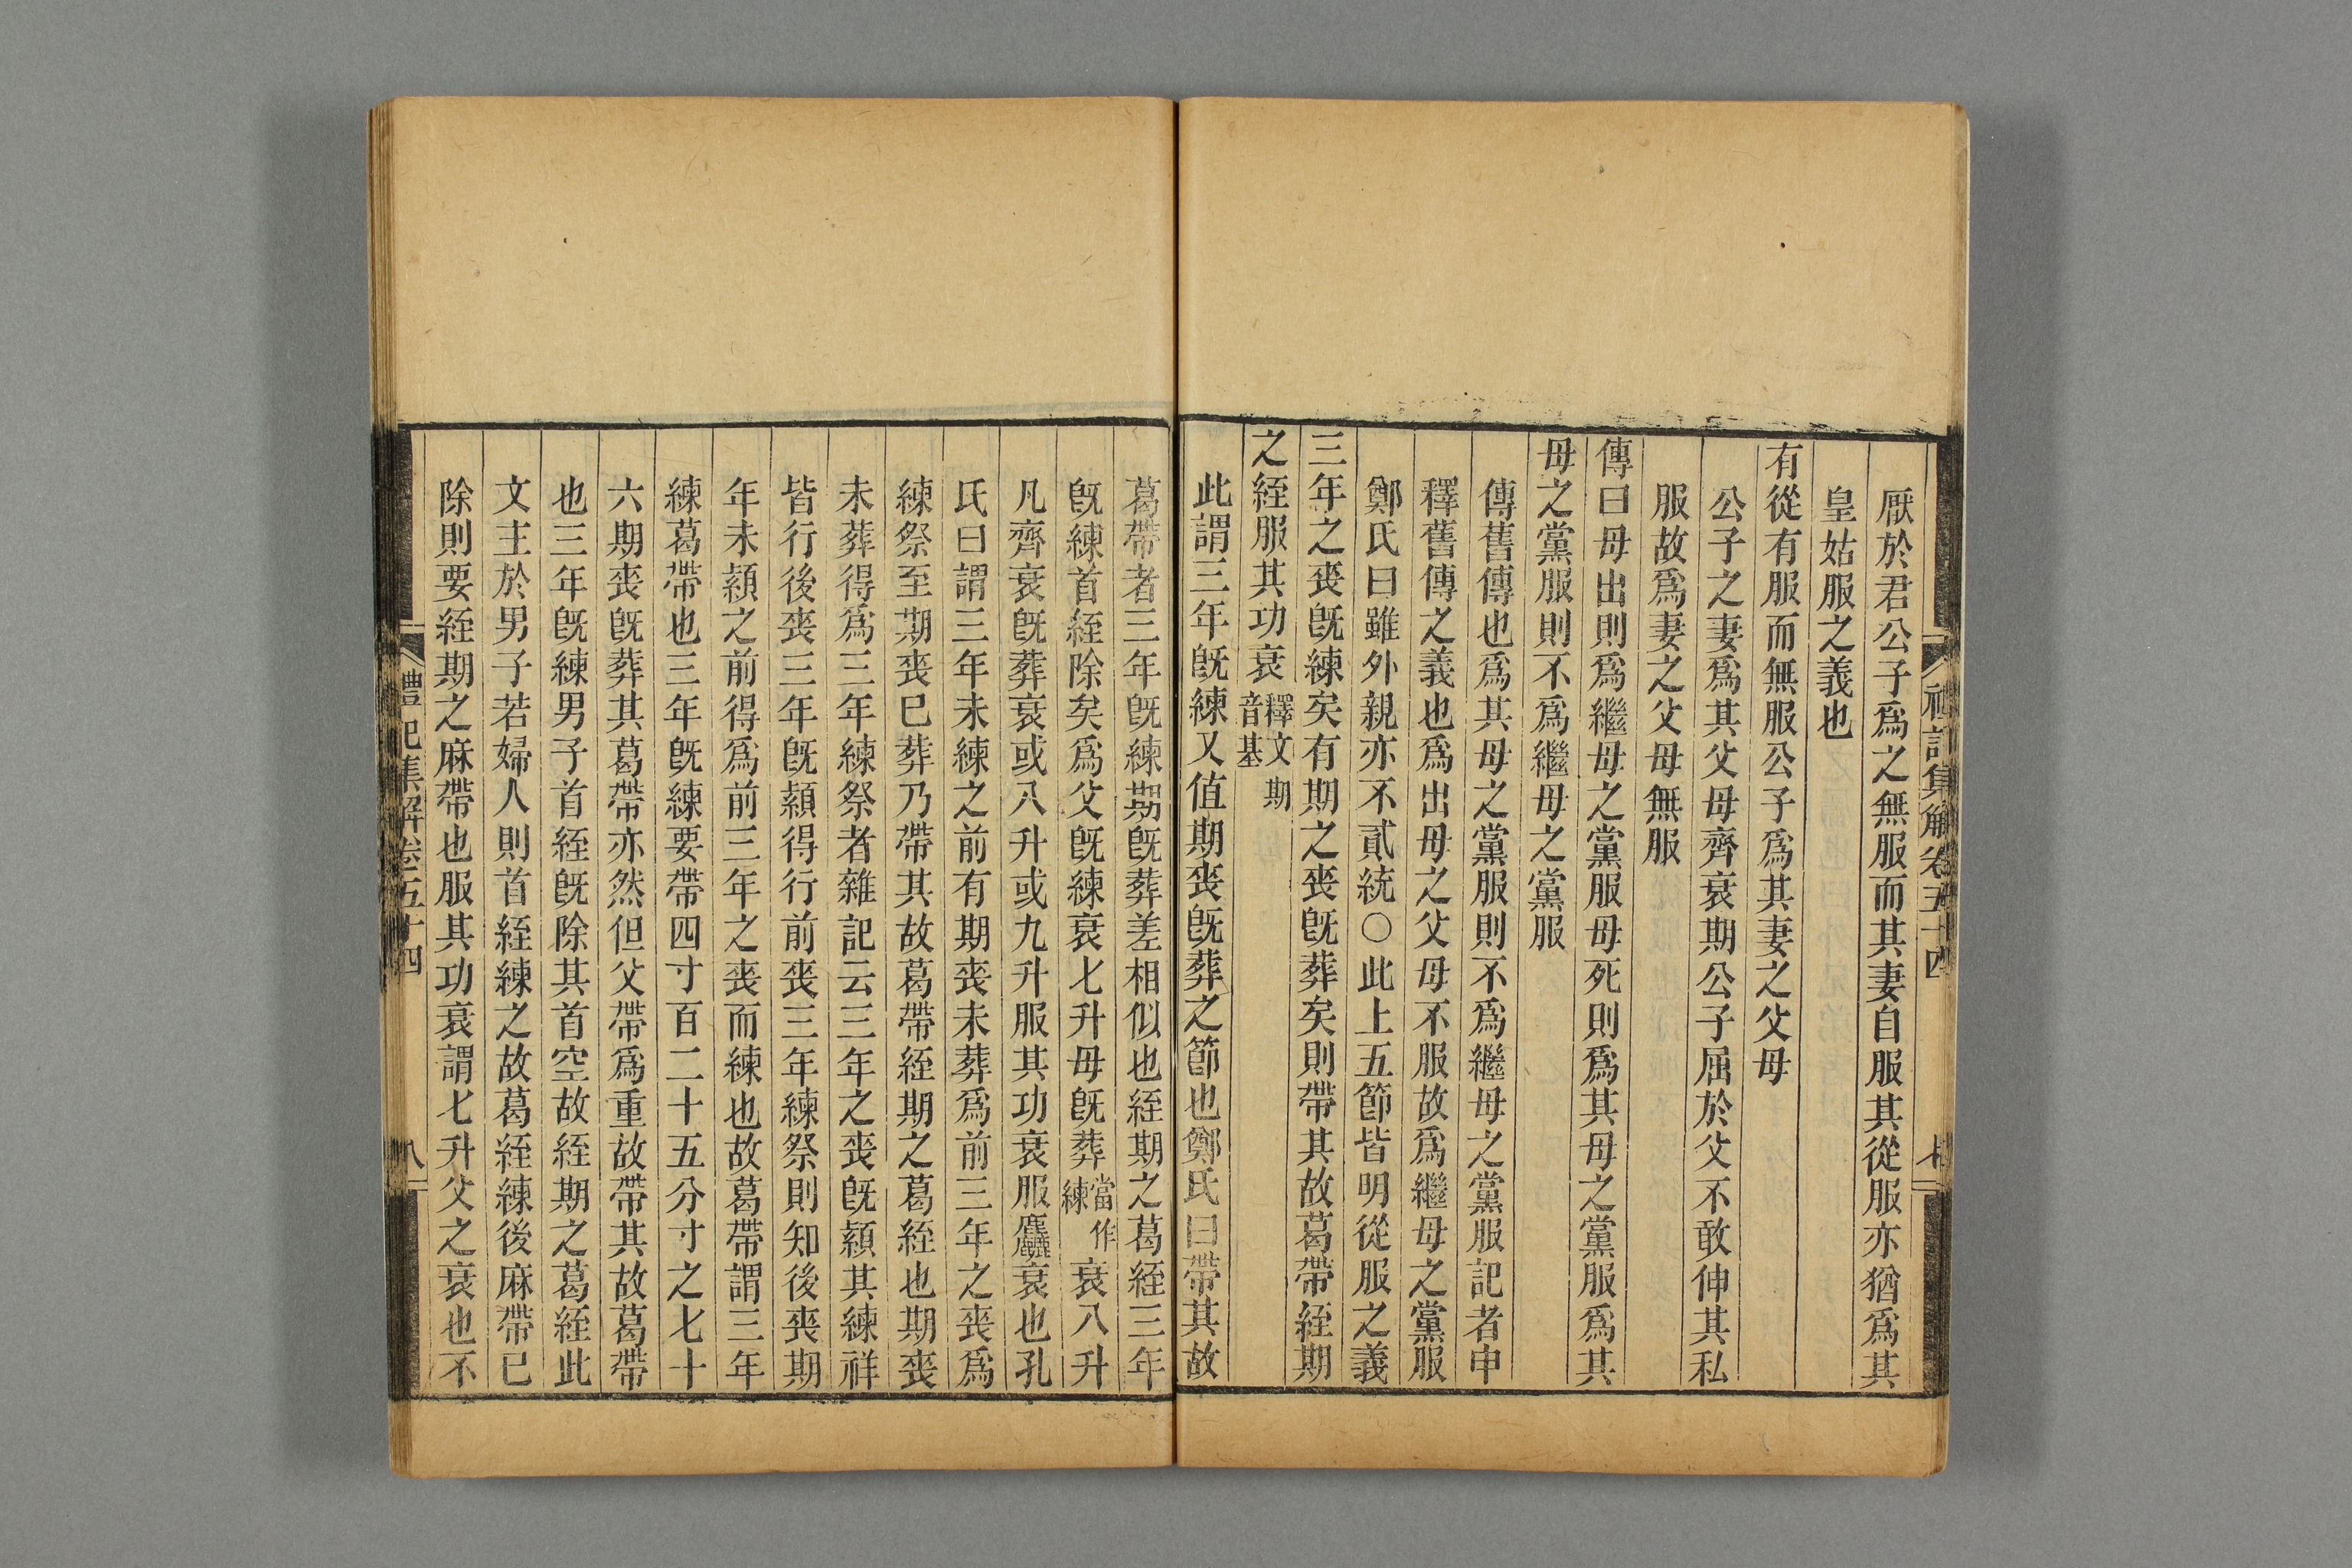 禮記集解卷五十四
七
厭於君公子爲之無服而其妻自服其從服亦猶爲其
皇姑服之義也
有從有服而無服公子爲其妻之父母
公子之妻爲其父母齊衰期公子屈於父不敢伸其私
服故爲妻之父母無服
傳曰母出則爲繼母之黨服母死則爲其母之黨服爲其
母之黨服則不爲繼母之黨服
傳舊傳也爲其母之黨服則不爲繼母之黨服記者申
釋舊傳之義也爲出母之父母不服故爲繼母之黨服
鄭氏曰雖外親亦不貳統○此上五節皆明從服之義
三年之喪旣練矣有期之喪旣葬矣則帶其故葛帶絰期
之絰服其功衰釋文期音基
此謂三年旣練又值期喪旣葬之節也鄭氏曰帶其故
葛帶者三年旣練期旣葬差相似也絰期之葛絰三年
旣練首絰除矣爲父旣練衰七升母旣葬當作練衰八升
凡齊衰旣葬衰或八升或九升服其功衰服麤衰也孔
氏曰謂三年未練之前有期喪未葬爲前三年之喪爲
練祭至期喪已葬乃帶其故葛帶絰期之葛絰也期喪
未葬得爲三年練祭者雜記云三年之喪旣顈其練祥
皆行後喪三年旣顈得行前喪三年練祭則知後喪期
年未顈之前得爲前三年之喪而練也故葛帶謂三年
練葛帶也三年旣練要帶四寸百二十五分寸之七十
六期喪旣葬其葛帶亦然但父帶爲重故帶其故葛帶
也三年旣練男子首絰旣除其首空故絰期之葛絰此
文主於男子若婦人則首絰練之故葛絰練後麻帶已
除則要絰期之麻帶也服其功衰謂七升父之衰也不
禮記集解卷五十四
八